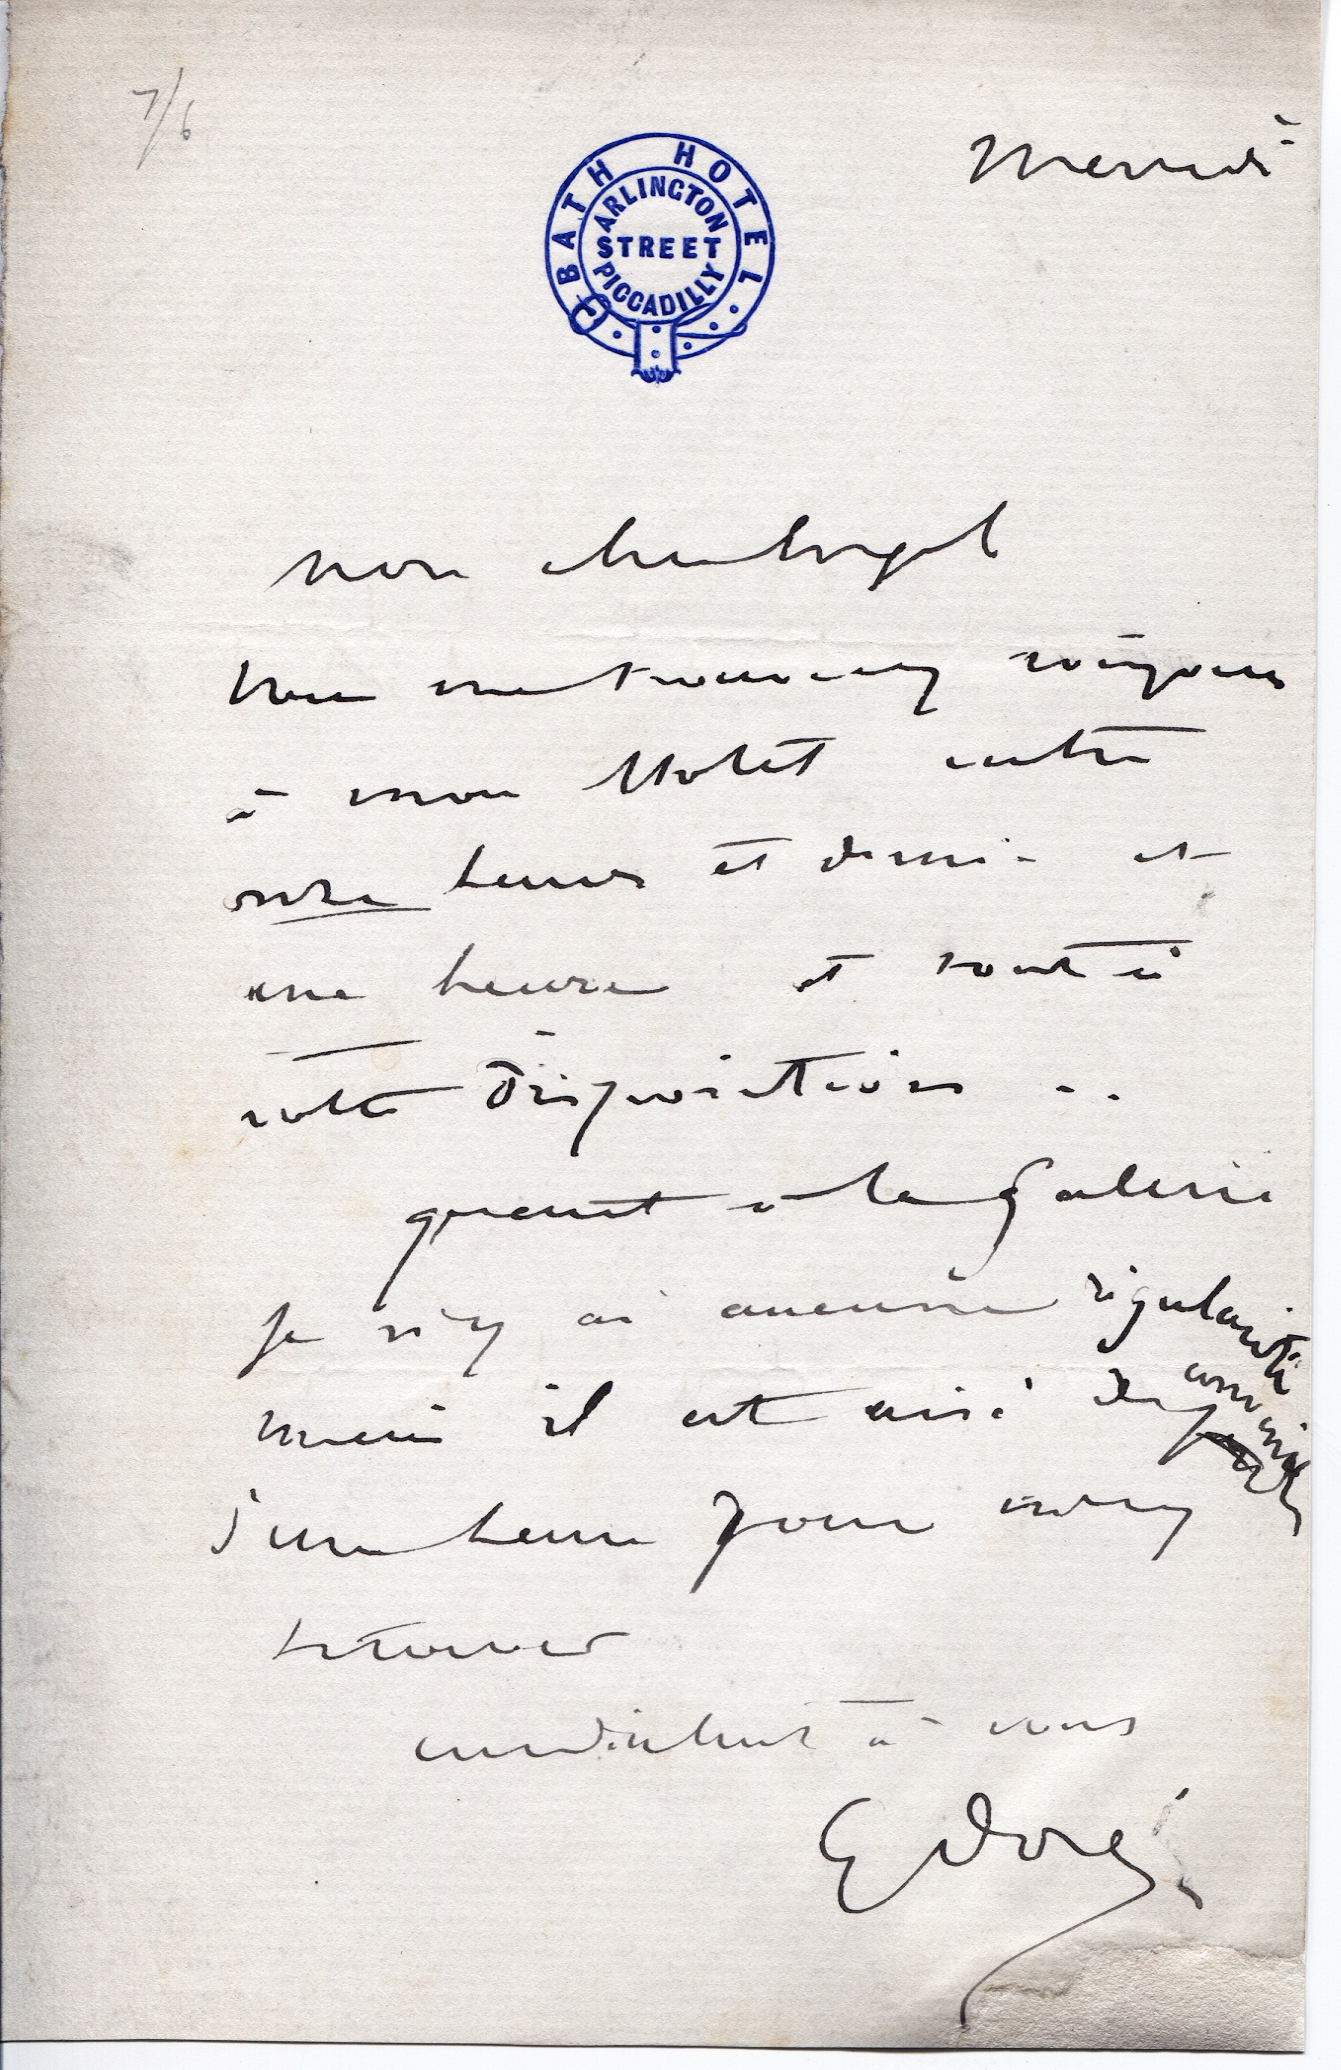 7/6
mercredi
BATH HOTEL
ARLINGTON
STREET
PICCADILLY
mon cher
vous me trouverez toujours
à mon Hotel entre
onze heures et demie et
une heure et tout à
votre disposition ..
quant à la Galerie
je n'y ai aucune régularité
mais il est aisé de convenir
d'une heure pour m'y
trouver
cordialement à vous
G Doré